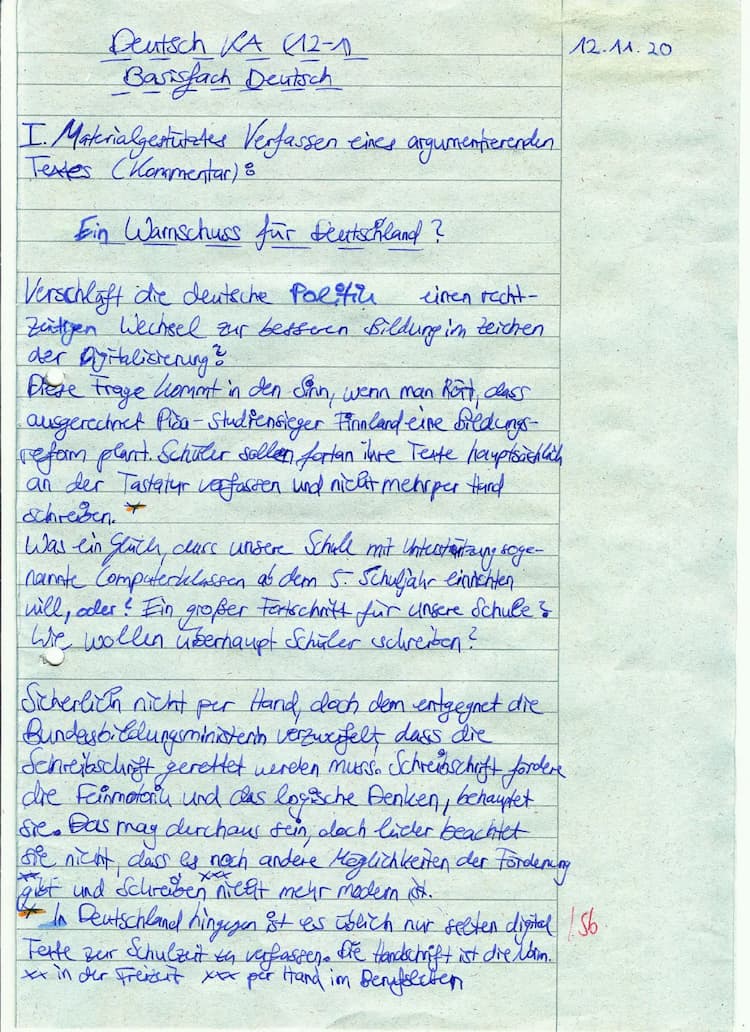 Deutsch KA (12-1)
12.11.20
Basisfach Deutsch
I. Materialgestütztes Verfassen eines argumentierenden
Textes (Kommentar):
Ein Warnschuss für Deutschland?
Verschläft die deutsche Politik einen recht-
zeitigen Wechsel zur besseren Bildung im Zeichen
der Digitalisierung?
Diese Frage kommt in den Sinn, wenn man hört, dass
ausgerechnet Pisa-Studiensieger Finnland eine Bildungs-
reform plant. Schüler sollen fortan ihre Texte hauptsächlich
an der Tastatur verfassen und nicht mehr per Hand
schreiben. *
Was ein Glück, dass unsere Schule mit Unterstützung soge-
nannte Computerklassen ab dem 5. Schuljahr einrichten
will, oder? Ein großer Fortschritt für unsere Schule?
Wie wollen überhaupt Schüler schreiben?
Sicherlich nicht per Hand, doch dem entgegnet die
Bundesbildungsministerin verzweifelt, dass die
Schreibschrift gerettet werden muss. Schreibschrift fördere
die Feinmotorik und das logische Denken, behauptet
sie. Das mag durchaus sein, doch leider beachtet
sie nicht, dass es noch andere Möglichkeiten der Förderung
xx gibt und Schreiben xxx nicht mehr modern ist.
* In Deutschland hingegen ist es üblich nur selten digital
Texte zur Schulzeit zu verfassen. Die Handschrift ist die Norm.
xx in der Freizeit xxx per Hand im Berufsleben